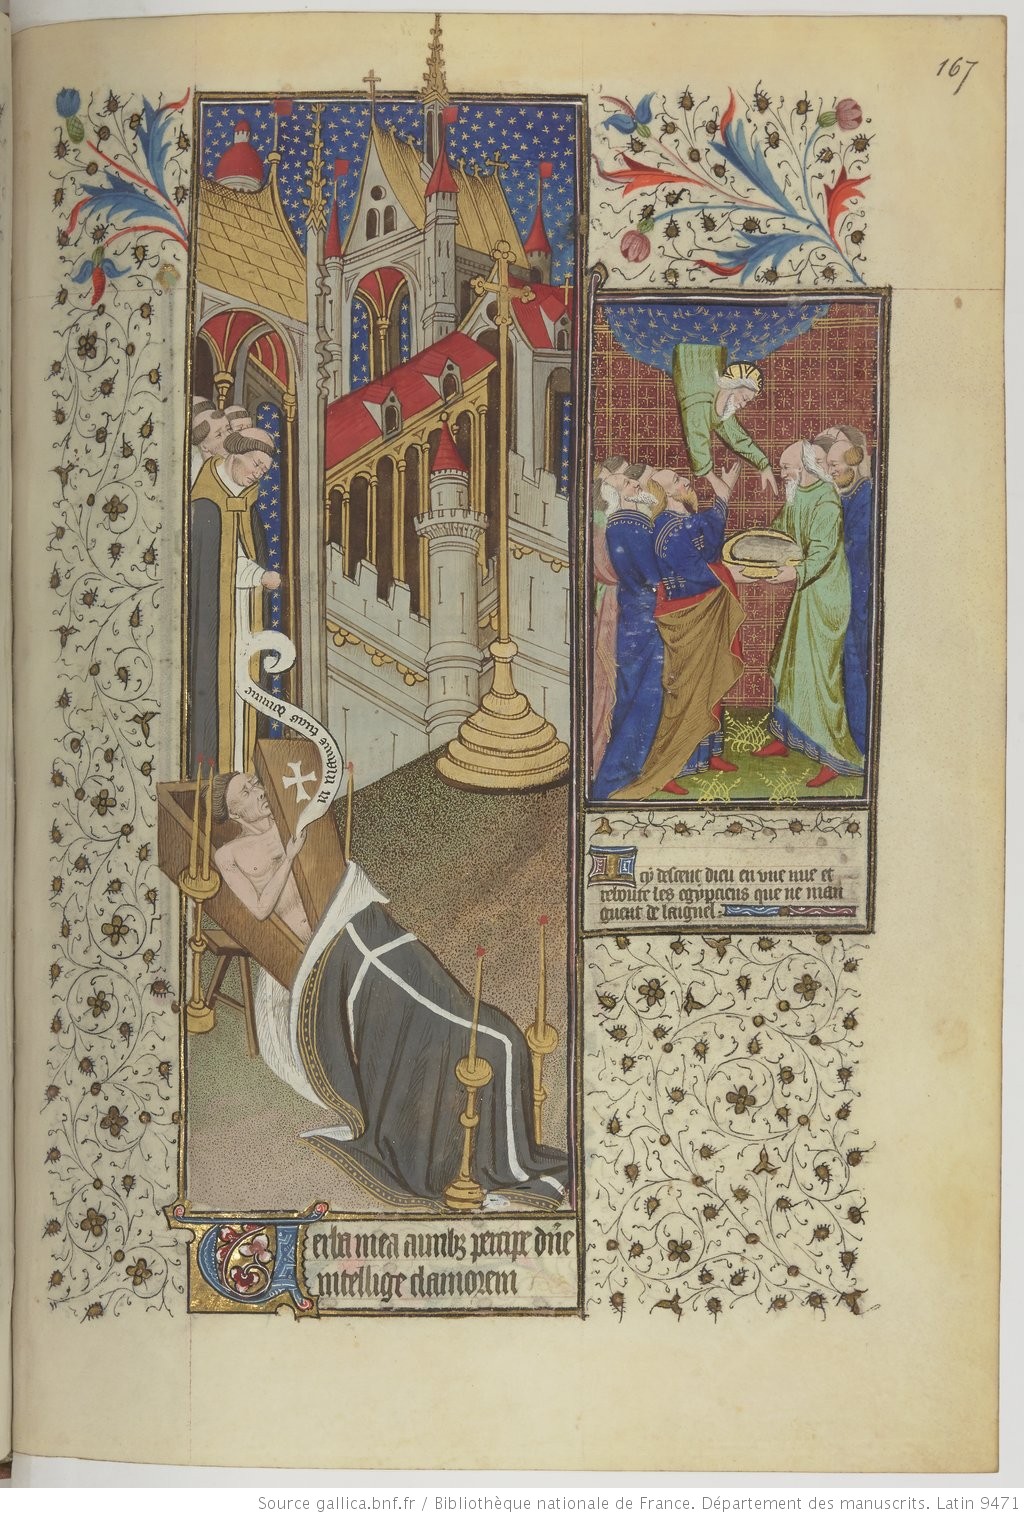 167
in manus tuas domine
Verba mea auribus percipe dñe
intellige clamorem
Icy descent dieu en vne nue et
reboute les egypciens que ne man
guent de laignel.
Source gallica.bnf.fr / Bibliothèque nationale de France. Département des manuscrits. Latin 9471